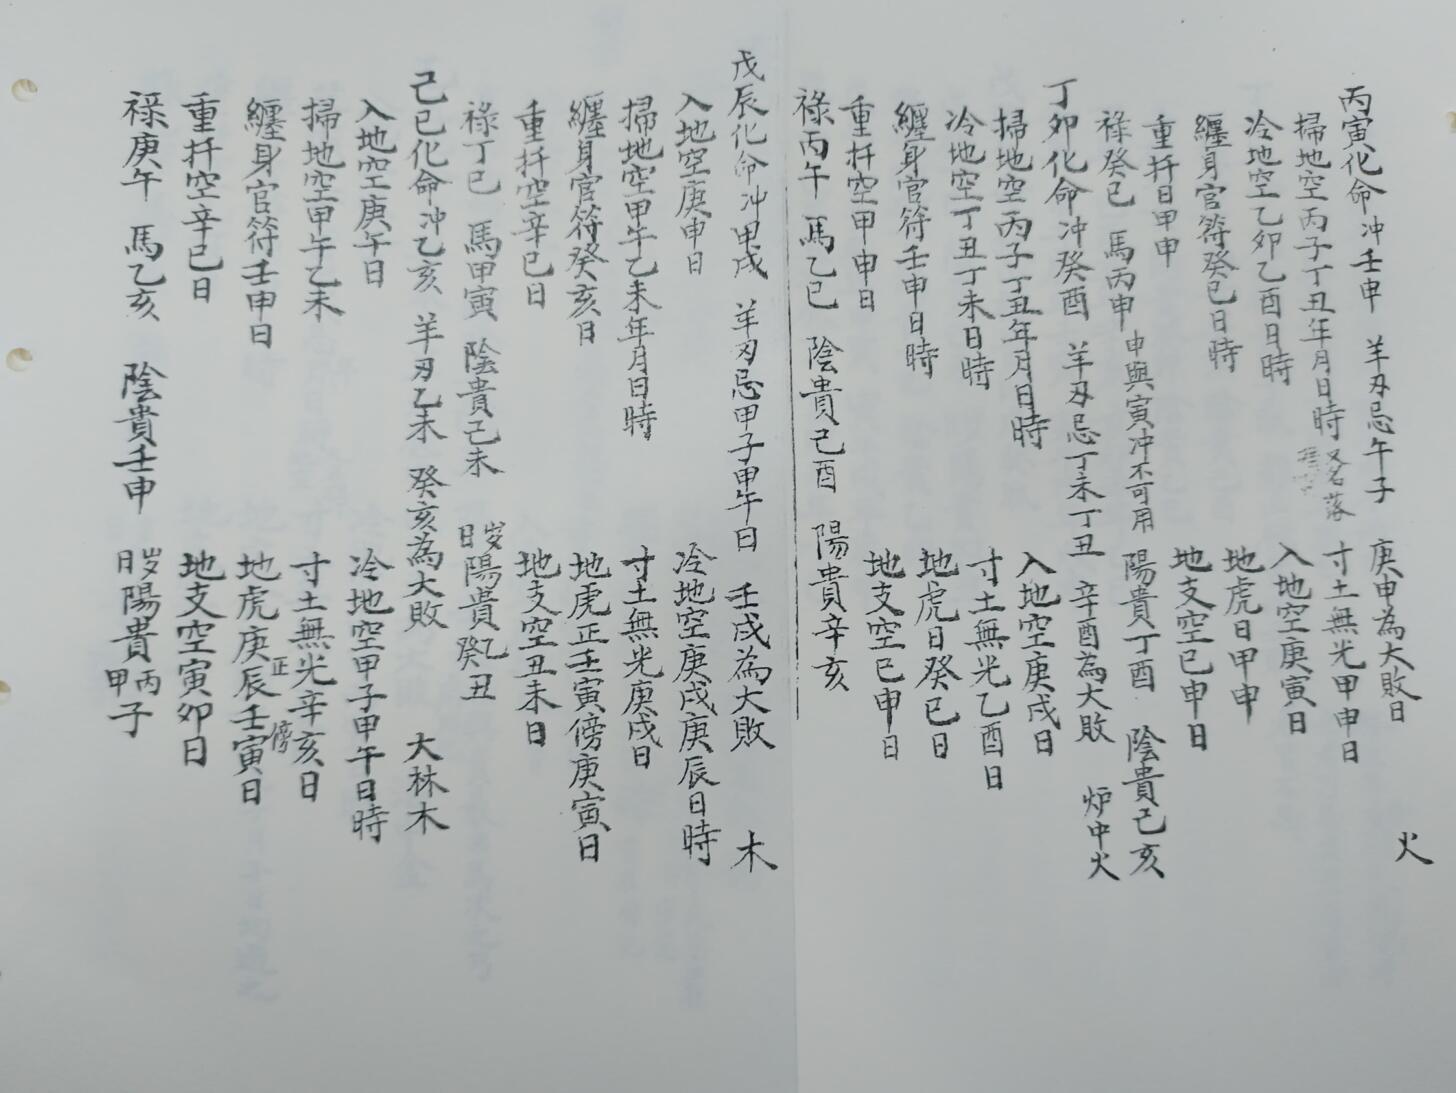 丙寅化命冲壬申 羊刃忌午子 庚申為大敗日 火
掃地空丙子丁丑年月日時 又名落 寸土無光甲申日
冷地空乙卯乙酉日時 入地空庚寅日
纏身官符癸巳日時 地虎日甲申
重扦日甲申 地支空巳申日
祿癸巳 馬丙申 申與寅冲不可用 陽貴丁酉 陰貴己亥
丁卯化命冲癸酉 羊刃忌丁未丁丑 辛酉為大敗 炉中火
掃地空丙子丁丑年月日時 入地空庚戌日
冷地空丁丑丁未日時 寸土無光乙酉日
纏身官符壬申日時 地虎日癸巳日
重扦空甲申日 地支空巳申日
祿丙午 馬乙巳 陰貴己酉 陽貴辛亥
戊辰化命冲甲戌 羊刃忌甲子甲午日 壬戌為大敗 木
入地空庚申日 冷地空庚戌庚辰日時
掃地空甲午乙未年月日時 寸土無光庚戌日
纏身官符癸亥日 地虎正壬寅傍庚寅日
重扦空辛巳日 地支空丑未日
祿丁巳 馬甲寅 陰貴己未 岁日陽貴乙癸丑
己巳化命冲乙亥 羊刃乙未 癸亥為大敗 大林木
入地空庚午日 冷地空甲子甲午日時
掃地空甲午乙未 寸土無光辛亥日
纏身官符壬申日 地虎庚辰正壬寅傍日
重扦空辛巳日 地支空寅卯日
祿庚午 馬乙亥 陰貴壬申 岁日陽貴丙甲子